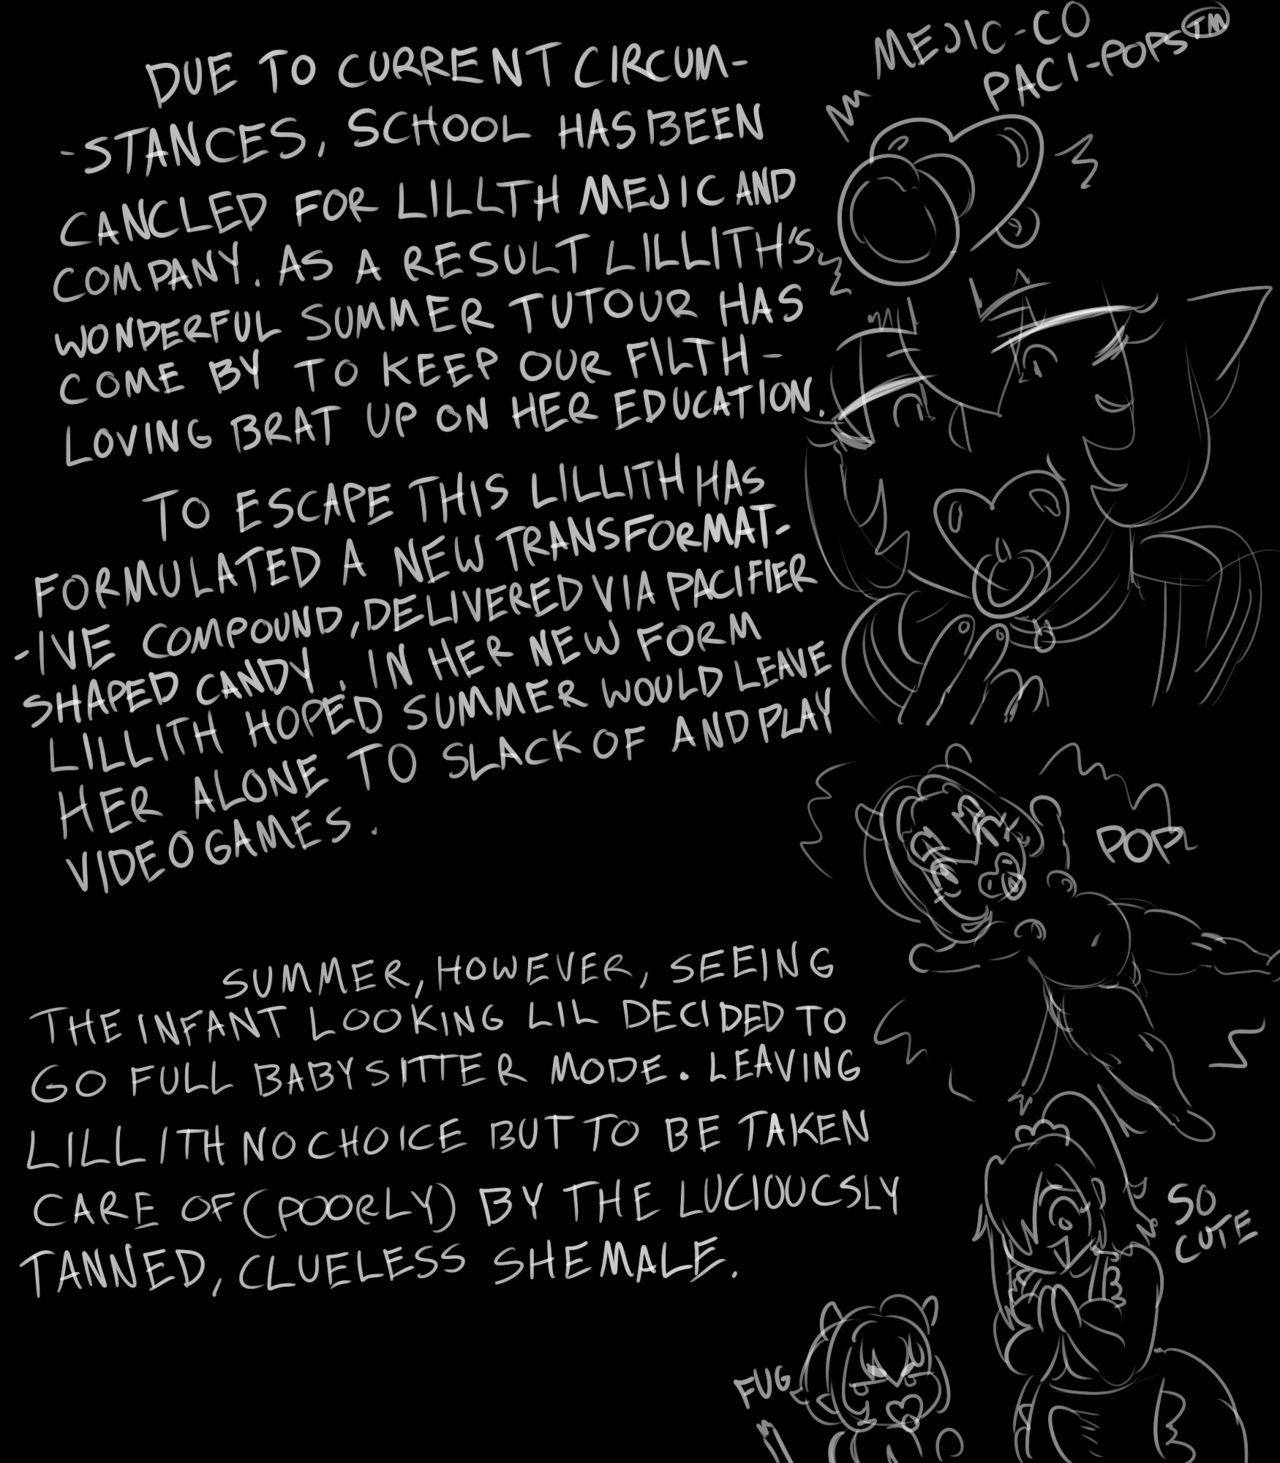 MEJIC-CO
PACI-POPS™
DUE TO CURRENT CIRCUM-
-STANCES, SCHOOL HAS BEEN
CANCLED FOR LILLTH MEJIC AND
COMPANY. AS A RESULT LILLITH'S
WONDERFUL SUMMER TUTOUR HAS
COME BY TO KEEP OUR FILTH-
LOVING BRAT UP ON HER EDUCATION.
TO ESCAPE THIS LILLITH HAS
FORMULATED A NEW TRANSFORMAT-
-IVE COMPOUND, DELIVERED VIA PACIFIER
SHAPED CANDY. IN HER NEW FORM
LILLITH HOPED SUMMER WOULD LEAVE
HER ALONE TO SLACK OF AND PLAY
VIDEOGAMES.
POP
SUMMER, HOWEVER, SEEING
THE INFANT LOOKING LIL DECIDED TO
GO FULL BABYSITTER MODE. LEAVING
LILLITH NO CHOICE BUT TO BE TAKEN
CARE OF (POORLY) BY THE LUCIOUCSLY
TANNED, CLUELESS SHEMALE.
SO
CUTE
FUG